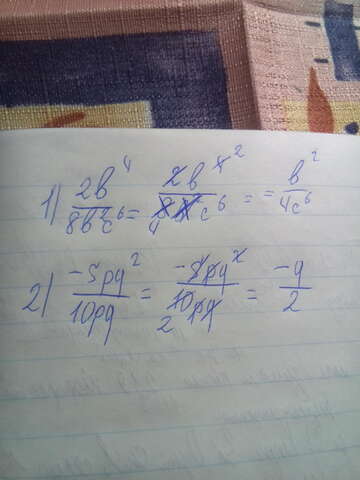 1) 2b⁴/8b²c⁶ = 2b⁴ ²/8 4 b²c⁶ = = b²/4c⁶
2) -5pq²/10pq = -5pq²/10 2 pq = -q/2